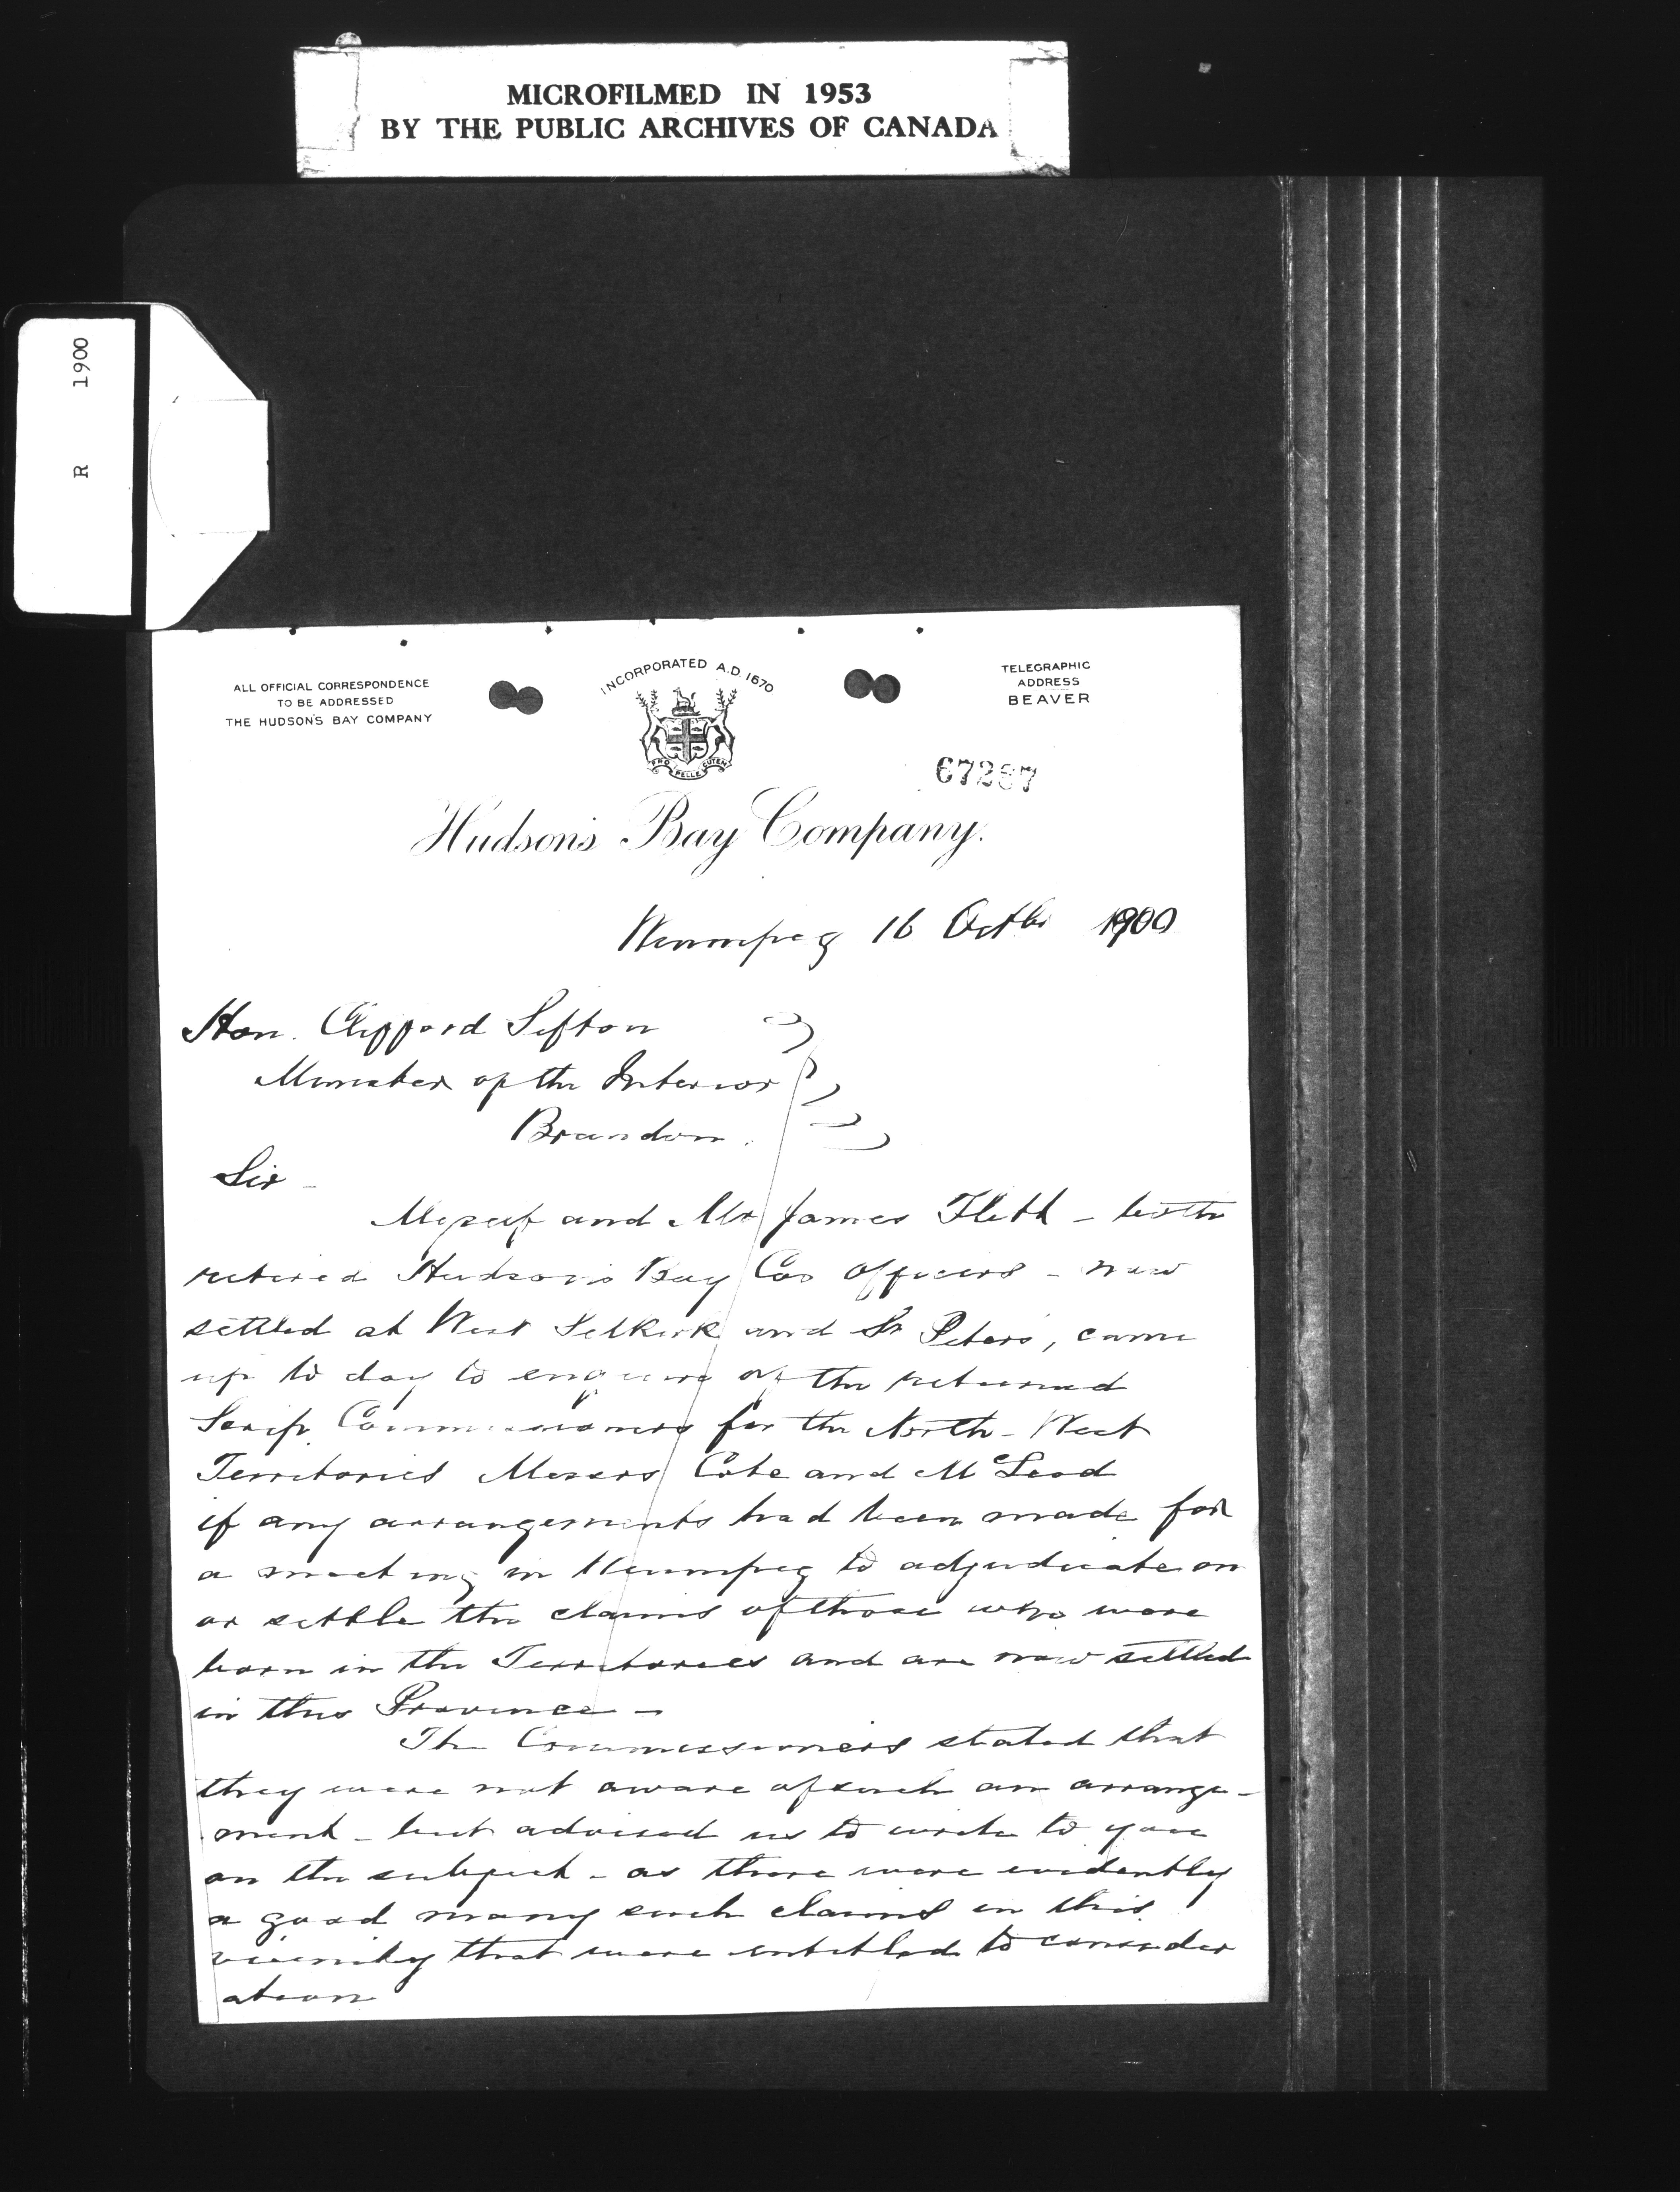 MICROFILMED IN 1953
BY THE PUBLIC ARCHIVES OF CANADA
R 1900
ALL OFFICIAL CORRESPONDENCE
TO BE ADDRESSED
THE HUDSON'S BAY COMPANY
INCORPORATED A.D. 1670
PRO PELLE CUTEM
TELEGRAPHIC
ADDRESS
BEAVER
67287
Hudson's Bay Company.
Winnipeg 16 Octbr 1900
Hon. Clifford Sifton
Minister of the Interior
Brandon.
Sir -
Myself and Mr James Flett - both
retired Hudson's Bay Cos Officers - now
settled at West Selkirk and St Peters, came
up to day to enquire of the returned
Scrip Commissioners for the North-West
Territories Messrs Cote and McLeod
if any arrangements had been made for
a meeting in Winnipeg to adjudicate on
or settle the claims of those who were
born in the Territories and are now settled
in this Province -
The Commissioners stated that
they were not aware of such an arrange-
ment - but advised us to write to you
on the subject - as there were evidently
a good many such claims in this
vicinity that were entitled to consider
ation